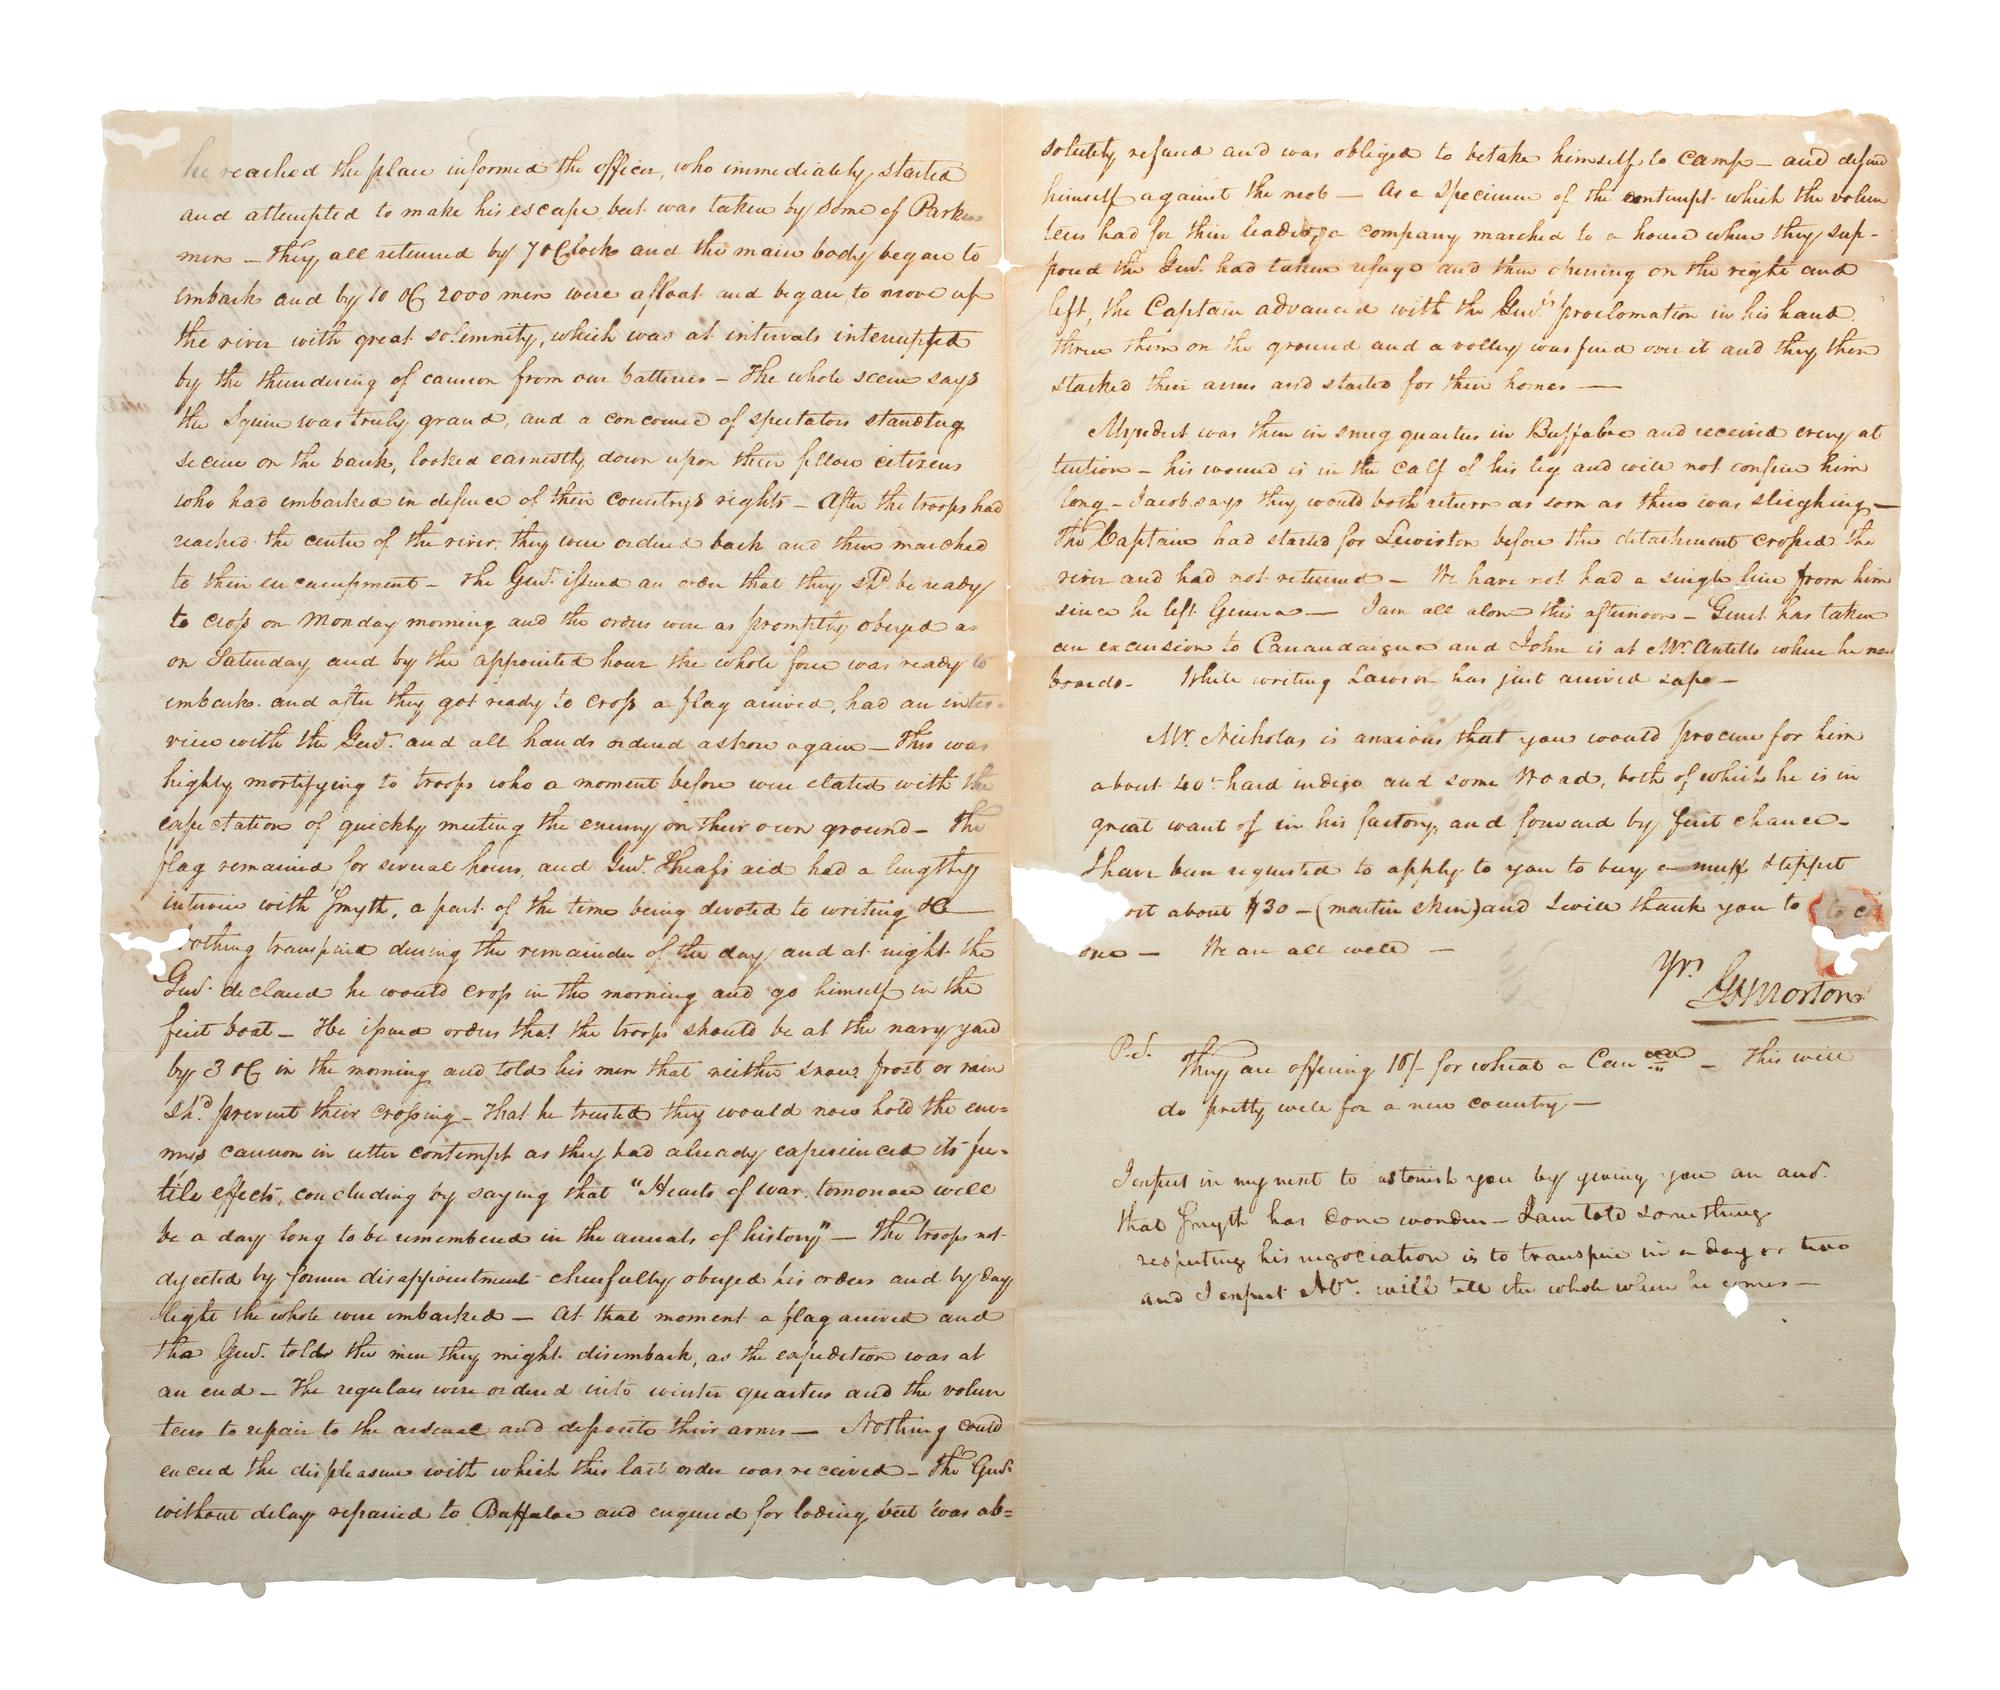 he reached the place informed the officer, who immediately started
and attempted to make his escape but was taken by some of Parkers
men — They all returned by 7 oClock and the main body began to
embark and by 10 oC 2000 men were afloat and began to move up
the river with great solemnity, which was at intervals interrupted
by the thundering of cannon from our batteries — The whole scene says
the Squire was truly grand, and a concourse of spectators standing
secure on the bank, looked earnestly down upon their fellow citizens
who had embarked in defence of their country's rights — After the troops had
reached the centre of the river, they were ordered back and then marched
to their encampment — The Genl. issued an order that they shd. be ready
to cross on Monday morning and the orders were as promptly obeyed as
on Saturday, and by the appointed hour the whole force was ready to
embark. and after they got ready to cross a flag arrived, had an inter-
view with the Genl. and all hands ordered ashore again — This was
highly mortifying to troops who a moment before were elated with the
expectation of quickly meeting the enemy on their own ground — The
flag remained for several hours, and Genl. Sheafs aid had a lengthy
interview with Smyth, a part of the time being devoted to writing &C —
othing transpired during the remainder of the day and at night the
Genl. declared he would cross in the morning and go himself in the
first boat — He issued orders that the troops should be at the navy yard
by 3 oC in the morning and told his men that neither snow frost or rain
shd. prevent their crossing — That he trusted they would now hold the ene=
mies cannon in utter contempt as they had already experienced its fu=
tile effects, concluding by saying that "Hearts of war, tomorrow will
be a day long to be remembered in the annals of history" — The troops not
dejected by former disappointment cheerfully obeyed his orders and by day
light the whole were embarked — At that moment a flag arrived and
the Genl. told the men they might disembark, as the expedition was at
an end — The regulars were ordered into winter quarters and the volun
teers to repair to the arsenal and deposite their arms — Nothing could
exceed the displeasure with which this last order was received — The Genl.
without delay repaired to Buffaloe and enquired for lodging but was ab=
solutely refused and was obliged to betake himself to camp — and defend
himself against the mob — As a specimen of the contempt which the volun
teers had for their leader, a company marched to a house where they sup-
posed the Genl. had taken refuge and then opening on the right and
left, the Captain advanced with the Genls. proclomation in his hand
threw them on the ground and a volley was fired over it and they then
stacked their arms and started for their homes —
Myndert was then in snug quarters in Buffaloe and received every at
tention — his wound is in the calf of his leg and will not confine him
long — Jacob says they would both return as soon as there was sleighing —
The Captain had started for Lewiston before the detachment crossed the
river and had not returned — We have not had a single line from him
since he left Geneva — I am all alone this afternoon — Gent. has taken
an excursion to Canandaigua and John is at Mr. Antills where he now
boards — While writing Lawson has just arrived safe —
Mr. Nicholas is anxious that you would procure for him
about 40 hard indigo and some Woad, both of which he is in
great want of in his factory, and forward by first chance —
I have been requested to apply to you to buy a muff & tippet
about $30 — (martin skin) and I will thank you to
one — We are all well —
Yrs.
GH Morton
P.S. They are offering 10/- for wheat a — This will
do pretty well for a new country —
I expect in my next to astonish you by giving you an acct.
that Smyth has done wonders — I am told something
respecting his negociation is to transpire in a day or two
and I expect will tell the whole when he comes —